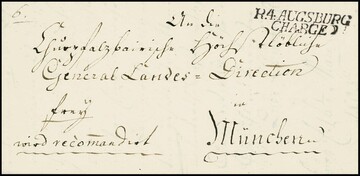 6.
R.4. AUGSBURG
CHARGÉ
An die
Churpfalzbairische Höchstlöbliche
General Landes = Direction
frey
in
wird recomandirt
München